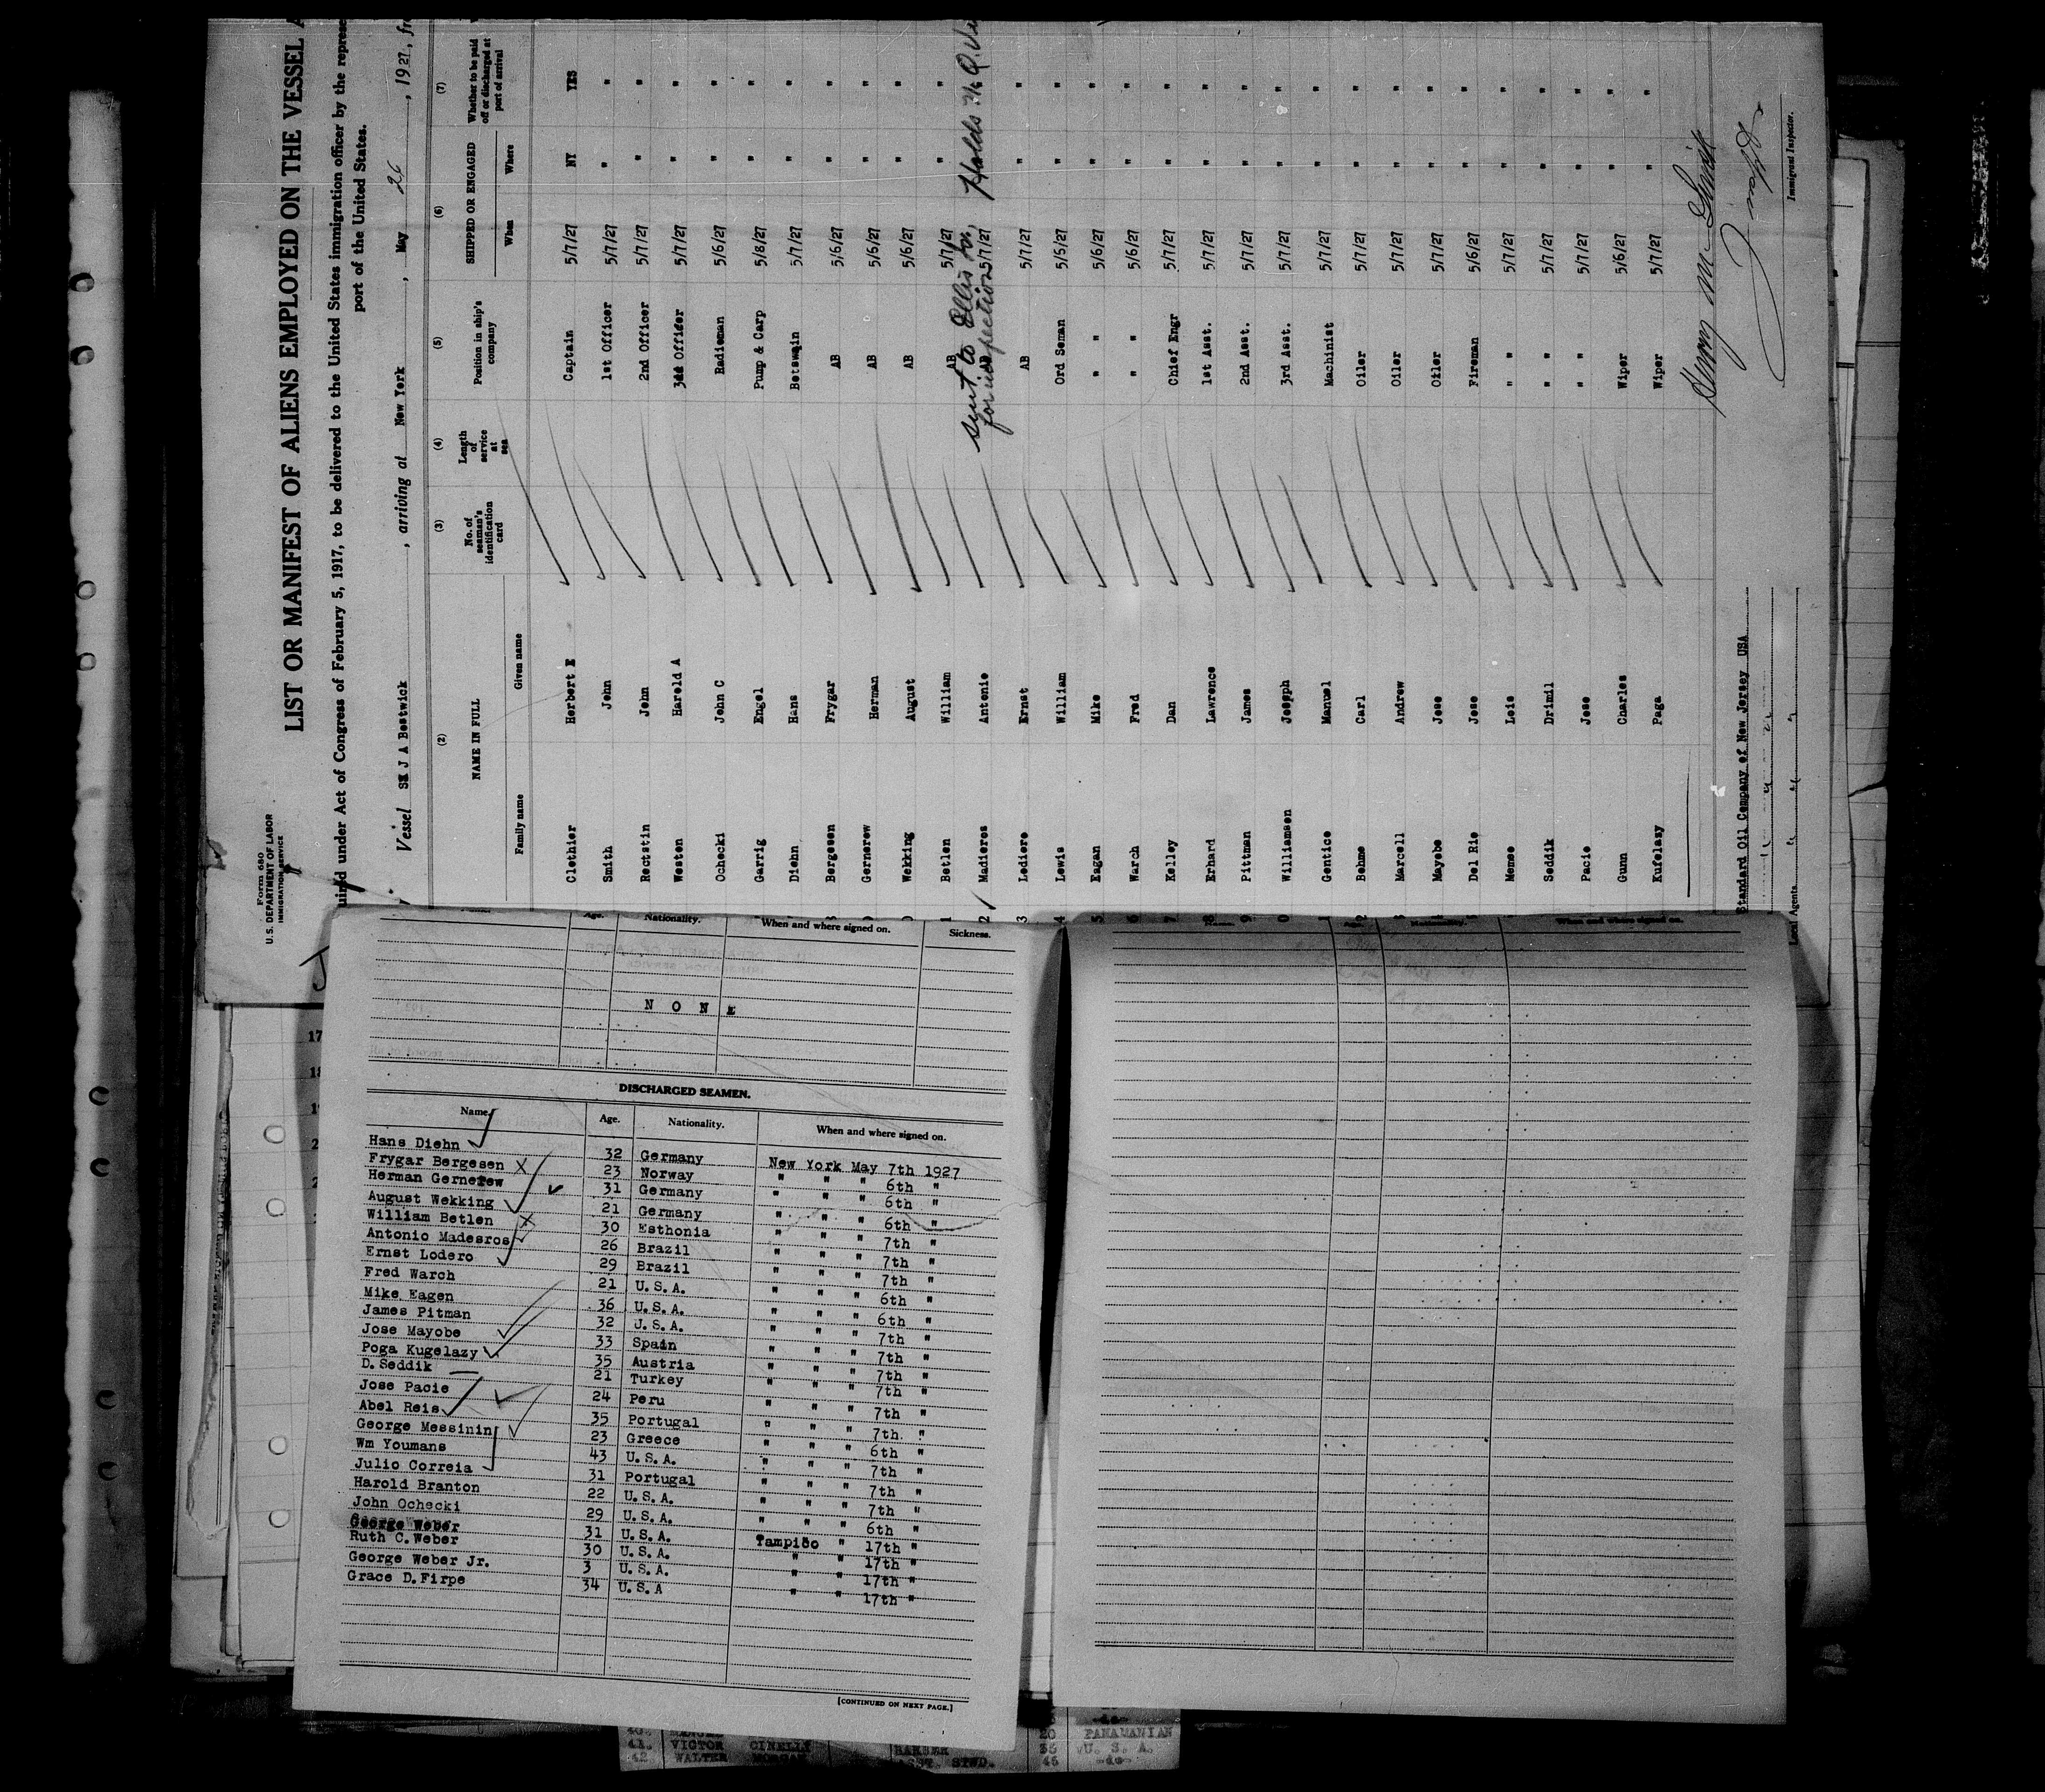 Form 680
U.S. DEPARTMENT OF LABOR
IMMIGRATION SERVICE
LIST OR MANIFEST OF ALIENS EMPLOYED ON THE VESSEL
under Act of Congress of February 5, 1917, to be delivered to the United States immigration officer by the
port of the United States.
Vessel SS J A Bostwick, arriving at New York, May 26, 1927,
(2) (3) (4) (5) (6) (7)
NAME IN FULL No. of seaman's identification card Length of service at sea Position in ship's company SHIPPED OR ENGAGED Whether to be paid off or discharged at port of arrival
Family name Given name When Where
Clothier Herbert E Captain 5/7/27 NY YES
Smith John 1st Officer 5/7/27 " "
Rectstin John 2nd Officer 5/7/27 " "
Weston Harold A 3dd Officer 5/7/27 " "
Ochocki John C Radioman 5/6/27 " "
Garrig Engel Pump & Carp 5/8/27 " "
Diehn Hans Botswain 5/7/27 " "
Bergesen Frygar AB 5/6/27 " "
Gernerew Herman AB 5/6/27 " "
Wekking August AB 5/6/27 " "
1 Betlen William AB 5/7/27 " "
sent to Ellis Isl, Holds
for inspection
2 Madieros Antonio AB 5/7/27
3 Lodiero Ernst AB 5/7/27 " "
4 Lewis William Ord Seman 5/6/27 " "
5 Eagan Mike " " 5/6/27 " "
6 Warch Fred " " 5/6/27 " "
7 Kelley Dan Chief Engr 5/7/27 " "
8 Erhard Lawrence 1st Asst. 5/7/27 " "
9 Pittman James 2nd Asst. 5/7/27 " "
0 Williamson Joseph 3rd Asst. 5/7/27 " "
1 Gontice Manuel Machinist 5/7/27 " "
2 Bohme Carl Oiler 5/7/27 " "
Marcell Andrew Oiler 5/7/27 " "
Mayobo Jose Oiler 5/7/27 " "
Del Rio Jose Fireman 5/6/27 " "
Menso Lois " " 5/7/27 " "
Seddik Drimil " " 5/7/27 " "
Pacie Jose " " 5/7/27 " "
Gunn Charles Wiper 5/6/27 " "
Kufelasy Paga Wiper 5/7/27 " "
Immigrant Inspector.
Standard Oil Company of New Jersey USA
Local Agents
Age. Nationality. When and where signed on. Sickness.
N O N E
DISCHARGED SEAMEN.
Name. Age. Nationality. When and where signed on.
Hans Diehn 32 Germany New York May 7th 1927
Frygar Bergesen 23 Norway " " " 6th "
Herman Gernerew 31 Germany " " " 6th "
August Wekking 21 Germany " " " 6th "
William Betlen 30 Esthonia " " " 7th "
Antonio Madesros 26 Brazil " " " 7th "
Ernst Lodero 29 Brazil " " " 7th "
Fred Warch 21 U.S.A. " " " 6th "
Mike Eagen 36 U.S.A. " " " 6th "
James Pitman 32 U.S.A. " " " 7th "
Jose Mayobe 33 Spain " " " 7th "
Poga Kugelazy 35 Austria " " " 7th "
D. Seddik 21 Turkey " " " 7th "
Jose Pacie 24 Peru " " " 7th "
Abel Reis 35 Portugal " " " 7th. "
George Messinin 23 Greece " " " 6th "
Wm Youmans 43 U.S.A. " " " 7th "
Julio Correia 31 Portugal " " " 7th "
Harold Branton 22 U.S.A. " " " 7th "
John Ochocki 29 U.S.A. " " " 6th "
George Weber 31 U.S.A. Tampico " 17th "
Ruth C. Weber 30 U.S.A. " " 17th "
George Weber Jr. 3 U.S.A. " " 17th "
Grace D. Firpe 34 U.S.A " " 17th "
[CONTINUED ON NEXT PAGE.]
Nationality. When and where signed on.
20 PANAMANIAN
41. VICTOR CINELLY BARBER 35 U. S. A.
42. WALTER MORGAN ASST. STWD. 45 -do-